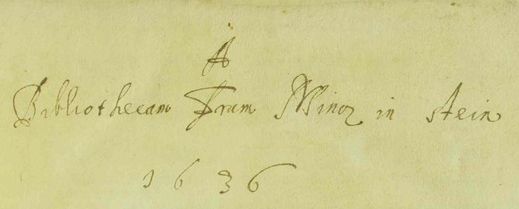 A
Bibliothecam Fram Minor in Stein
1636